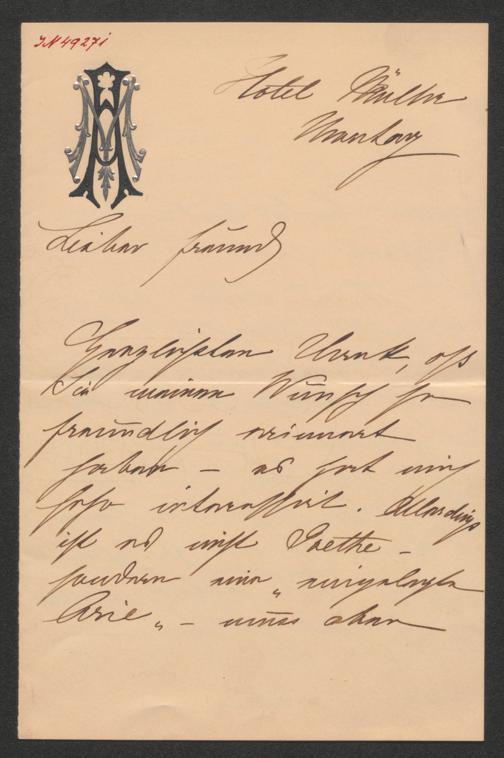 JN 49271
Hotel Müller
Montag
Lieber Freund
Herzlichsten Dank, daß
Sie meinen Wunsch so
freundlich erinnert
haben – es hat mich
sehr interessirt. Allerdings
ist es nicht Goethe –
sondern eine „eingelegte
Arie„ – muss aber